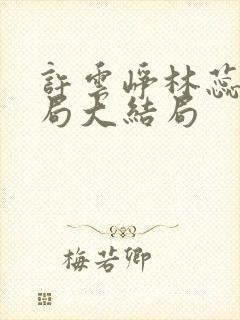 許雲崢林蕊
局大結局
梅若卿